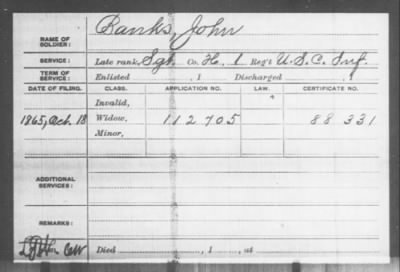 NAME OF SOLDIER: Banks, John
SERVICE: Late rank, Sgt. Co. H., 1 Reg't U.S.C. Inf.
TERM OF SERVICE: Enlisted , 1 Discharged , 1
DATE OF FILING. CLASS. APPLICATION NO. LAW. CERTIFICATE NO.
Invalid,
1865, Oct. 18 Widow, 112705 88331
Minor,
ADDITIONAL SERVICES:
REMARKS:
Died , 1 , at